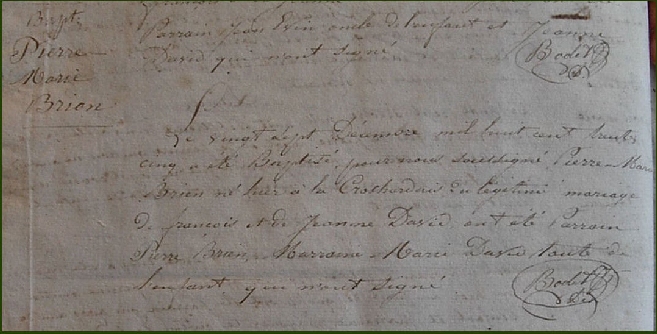 Bapt:
Pierre
Marie
Brien
Parrain Jean Evin oncle de l'enfant et Jeanne
David qui n'ont signé
Bodet
Le vingt sept Décembre mil huit cent trente
cinq a été Baptisé, par nous soussigné Pierre-Marie
Brien né hier à la du légitime mariage
de françois et de Jeanne David ont été Parrain
Pierre Brien, Marraine Marie David, tante de
l'enfant qui n'ont signé
Bodet